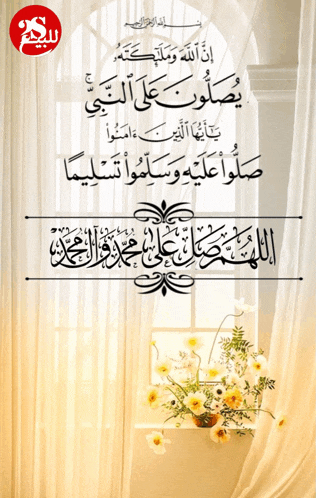 بسم الله الرحمن الرحيم
إِنَّ ٱللَّهَ وَمَلَٰٓئِكَتَهُۥ
يُصَلُّونَ عَلَى ٱلنَّبِىِّ ۚ
يَٰٓأَيُّهَا ٱلَّذِينَ ءَامَنُوا۟
صَلُّوا۟ عَلَيْهِ وَسَلِّمُوا۟ تَسْلِيمًا
اللهُمَّ صَلِّ عَلَى مُحَمَّدٍ وَآلِ مُحَمَّدٍ
لبيكم